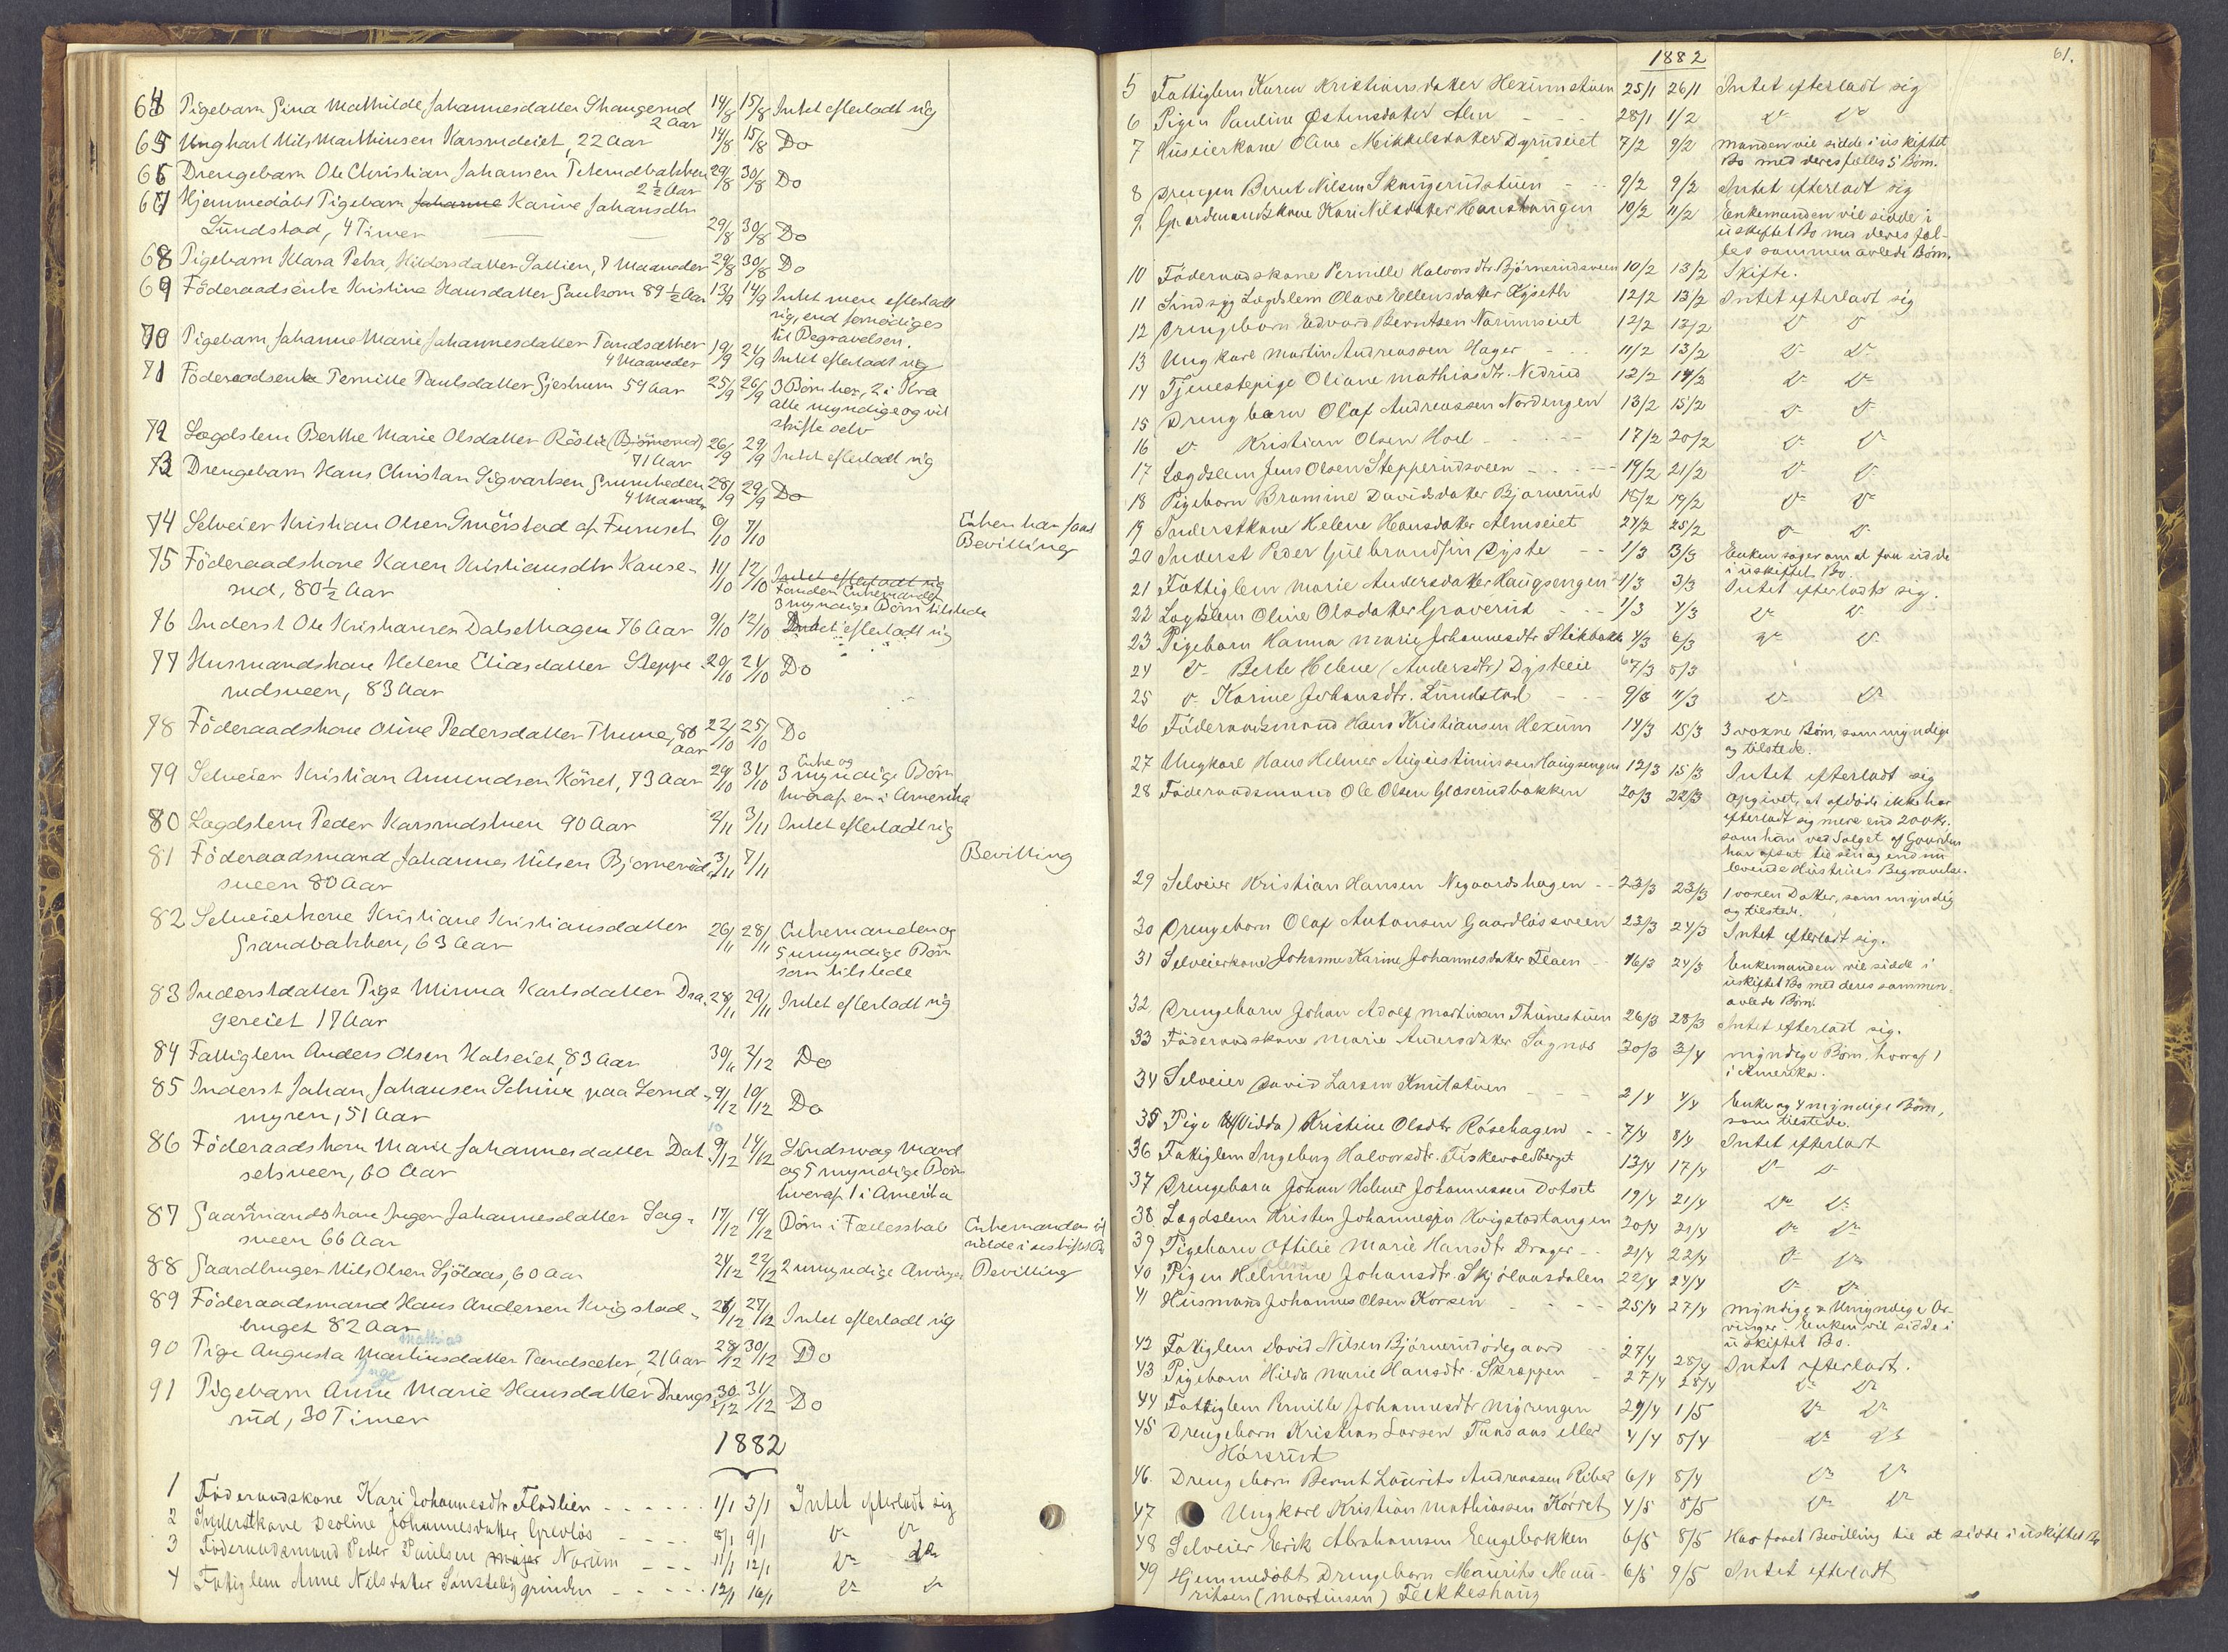 64 Pigebarn Gina Mathilde Johannesdatter Skaugerud 14/8 15/8 Intet efterladt sig
2 Aar
65 Ungkarl Nils Mathiesen Karsrudeiet, 22 Aar 14/8 15/8 Do
66 Drengebarn Ole Christian Johansen Teterudbakken 29/8 30/8 Do
2½ Aar
67 Hjemmedøbt Pigebarn Johanne Karine Johansdtr
Lundstad, 4 Timer 29/8 30/8 Do
68 Pigebarn Klara Petra, Hildorsdatter Sætlien, 8 Maaneder 29/8 30/8 Do
69 Föderaadsenke Kristine Hansdatter Gaukom 89½ Aar 13/9 14/9 Intet mere efterladt
sig, end fornödiges
til Begravelsen.
70 Pigebarn Johanne Marie Johannesdatter Tandsæther 19/9 24/9 Intet efterladt sig
4 Maaneder
71 Föderaadsenke Pernille Paulsdatter Gjestrum 59 Aar 25/9 26/9 3 Börn her, 2 i Kra
alle myndige og vil
skifte selv
72 Lægdslem Berthe Marie Olsdatter Röslie (Björnerud) 26/9 29/9 Intet efterladt sig
71 Aar
73 Drengebarn Hans Christian Sigvartsen Grumheden 28/9 29/9 Do
4 Maaneder
74 Selveier Kristian Olsen Smörstad af Furuset 6/10 7/10 Enken har faaet
Bevilling
75 Föderaadskone Karen Kristiansdtr Kause- 11/10 12/10 Intet efterladt sig
rud, 80½ Aar foruden Enkemanden
3 myndige Börn tilstede
76 Inderst Ole Kristiansen Dalsethagen 76 Aar 9/10 12/10 Intet efterladt sig
77 Husmandskone Helene Eliasdatter Steppe- 20/10 24/10 Do
rudsveen, 83 Aar
78 Föderaadskone Oline Pedersdatter Thune, 80 22/10 25/10 Do
Aar
79 Selveier Kristian Amundsen Körret, 73 Aar 29/10 31/10 Enke og
3 myndige Börn
hvoraf en i Amerika
80 Lægdslem Peder Karsrudstuen 90 Aar 2/11 3/11 Intet efterladt sig
81 Föderaadsmand Johannes Nilsen Bjornerud- 3/11 7/11 Bevilling
sveen 80 Aar
82 Selveierkone Kristiane Kristiansdatter
Grandbakken, 63 Aar 26/11 28/11 Enkemanden og
5 umyndige Börn
som tilstede
83 Inderstdatter Pige Minna Karlsdatter Dra- 28/11 29/11 Intet efterladt sig
gereiet 17 Aar
84 Fattiglem Anders Olsen Halseiet, 83 Aar 30/11 2/12 Do
85 Inderst Johan Johansen Schine paa Lerud- 9/12 10/12 Do
myren, 51 Aar
86 Föderaadskone Marie Johannesdatter Dal- 9/12 14/12 Sindssvag Mand
setsveen, 60 Aar og 5 myndige Börn
hvoraf 1 i Amerika
87 Gaardmandskone Inger Johannesdatter Sag- 17/12 19/12 Börn i Fællesskab Enkemanden vil
sveen 66 Aar sidde i uskiftet Bo
88 Gaardbruger Nils Olsen Sjölaas, 60 Aar 21/12 22/12 2 umyndige Arvinger Bevilling
89 Föderaadsmand Hans Andersen Kvigstad- 21/12 27/12 Intet efterladt sig
bruget 82 Aar
Mathias
90 Pige Augusta Martinsdatter Tandsæter, 21 Aar 28/12 30/12 Do
Inge
91 Pigebarn Anne Marie Hansdatter Drengs- 30/12 31/12 Do
rud, 30 Timer
1882
1 Föderaadskone Kari Johannesdtr Flodlien 1/1 3/1 Intet efterladt sig
2 Inderstkone Deoline Johannesdatter Grevlös 8/1 9/1 Do Do
3 Föderaadsmand Peder Paulsen majer Narum 11/1 12/1 Do Do
4 Fattiglem Anne Nilsdatter Sonstebygrinden 12/1 16/1 Do Do
61.
1882
5 Fattiglem Karen Kristiansdatter Hexumstuen 25/1 26/1 Intet efterladt sig
6 Pigen Pauline Østensdatter Alm 28/1 1/2 Do Do
7 Huseierkone Oline Mikkelsdatter Dyrudeiet 7/2 9/2 Manden vil sidde i uskiftet
Bo med deres fælles 5 Børn.
8 Drengen Bernt Nilsen Skaugerudstuen 9/2 9/2 Intet efterladt sig
9. Gaardmandskone Kari Nilsdatter Hanshaugen 10/2 11/2 Enkemanden vil sidde i
uskiftet Bo med deres fæl-
les sammen avlede Børn.
10 Föderaadskone Pernille Halvorsdtr. Björnerudsveen 10/2 13/2 Skifte.
11 Sindsyg Lægdslem Olave Ellensdatter Kyseth 12/2 13/2 Intet efterladt sig
12 Drengebarn Edvard Berntsen Narumseiet 12/2 13/2 Do Do
13 Ungkarl Martin Andreassen Hager 11/2 13/2 Do Do
14 Tjenestepige Oliane Mathiasdtr. Nedrud 12/2 14/2 Do Do
15 Drengbarn Olaf Andreassen Nordengen 13/2 15/2 Do Do
16 Do Kristian Olsen Hoel 17/2 20/2 Do Do
17 Lægdslem Jens Olsen Stepperudsveen 19/2 21/2 Do Do
18 Pigebarn Bramine Davidsdatter Bjørnerud 15/2 19/2 Do Do
19 Inderstkone Helene Hansdatter Almseiet 24/2 25/2 Do Do
20 Inderst Peder Gulbrandsen Dyste 1/3 3/3 Enken søger om at faa sidde
i uskiftet Bo.
21 Fattiglem Marie Andersdatter Haugsengen 1/3 3/3 Intet efterladt sig.
22 Lægdslem Oline Olsdatter Graverud 1/3 4/3 Do Do
23 Pigebarn Hanna Marie Johannesdtr Stikbakk 4/3 6/3 Do Do
24 Do Berte Helene (Andersdtr) Dysteeie 7/3 8/3
25 Do Karine Johansdtr. Lundstad 9/3 11/3 Do Do
26 Föderaadsmand Hans Kristiansen Hexum 14/3 15/3 3 voxne Børn, som myndige
og tilstede.
27 Ungkarl Hans Helmer Augustinussen Haugsengen 12/3 15/3 Intet efterladt sig
28 Föderaadsmand Ole Olsen Glæserudbakken 20/3 22/3 Opgivet, at afdøde ikke har
efterladt sig mere end 200 Kr.
som han ved Salget af Gaarden
har afsat til sin og endnu
levende Hustrues Begravelse.
29 Selveier Kristian Hansen Negaardshagen 23/3 23/3 1 voxen Datter, som myndig
og tilstede.
30 Drengebarn Olaf Antonsen Gaardløssveen 23/3 24/3 Intet efterladt sig.
31 Selveierkone Johanne Karine Johannesdatter Floen 16/3 24/3 Enkemanden vil sidde i
uskiftet Bo med deres sammen-
avlede Børn.
32 Drengebarn Johan Adolf Martinsen Thunestuen 26/3 28/3 Intet efterladt sig.
33 Föderaadskone Marie Andersdatter Sognes 30/3 3/4 Myndige Børn, hvoraf 1
i Amerika.
34 Selveier David Larsen Knutstuen 2/4 4/4 Enke og 4 myndige Børn,
som tilstede.
35 Pige (Vidda) Kristine Olsdtr Røsehagen 7/4 8/4 Intet efterladt
36 Fattiglem Ingeborg Halvorsdtr. Fiskevoldberget 13/4 17/4 Do Do
37 Drengebarn Johan Helmer Johannessen Dotset 19/4 21/4 Do Do
38. Lægdslem Kristen Johannessen Kvigstadtangen 20/4 21/4 Do Do
39 Pigebarn Ottilie Marie Hansdtr Drager 21/4 22/4 Do Do
40 Pigen Helmine Johansdtr. Skjølaasdalen 22/4 24/4 Do Do
41 Husmand Johannes Olsen Korsen 25/4 27/4 Myndige & Umyndige Ar-
vinger. Enken vil sidde i
uskiftet Bo.
42 Fattiglem David Nilsen Bjørnerudødegaard 27/4 28/4 Intet efterladt.
43 Pigebarn Hilda Marie Hansdtr. Skreppen 27/4 28/4 Do Do
44 Fattiglem Pernille Johannesdtr Myrengen 29/4 1/5 Do Do
45 Drengebarn Kristian Larsen Tunsaas eller 4/4 8/4 Do Do
Hårsrud
46. Drengebarn Bernt Laurits Andreassen Riber 6/4 8/4 Do Do
47 Ungkarl Kristian Mathiassen Körret 4/5 8/5 Do Do
48 Selveier Erik Abrahamsen Engebakken 6/5 8/5 Har faaet Bevilling til at sidde i uskiftet Bo
49 Hjemmedøbt Drengebarn Maurits Mau- 6/5 9/5 Intet efterladt
ritsen (Martinsen) Flekkeshaug